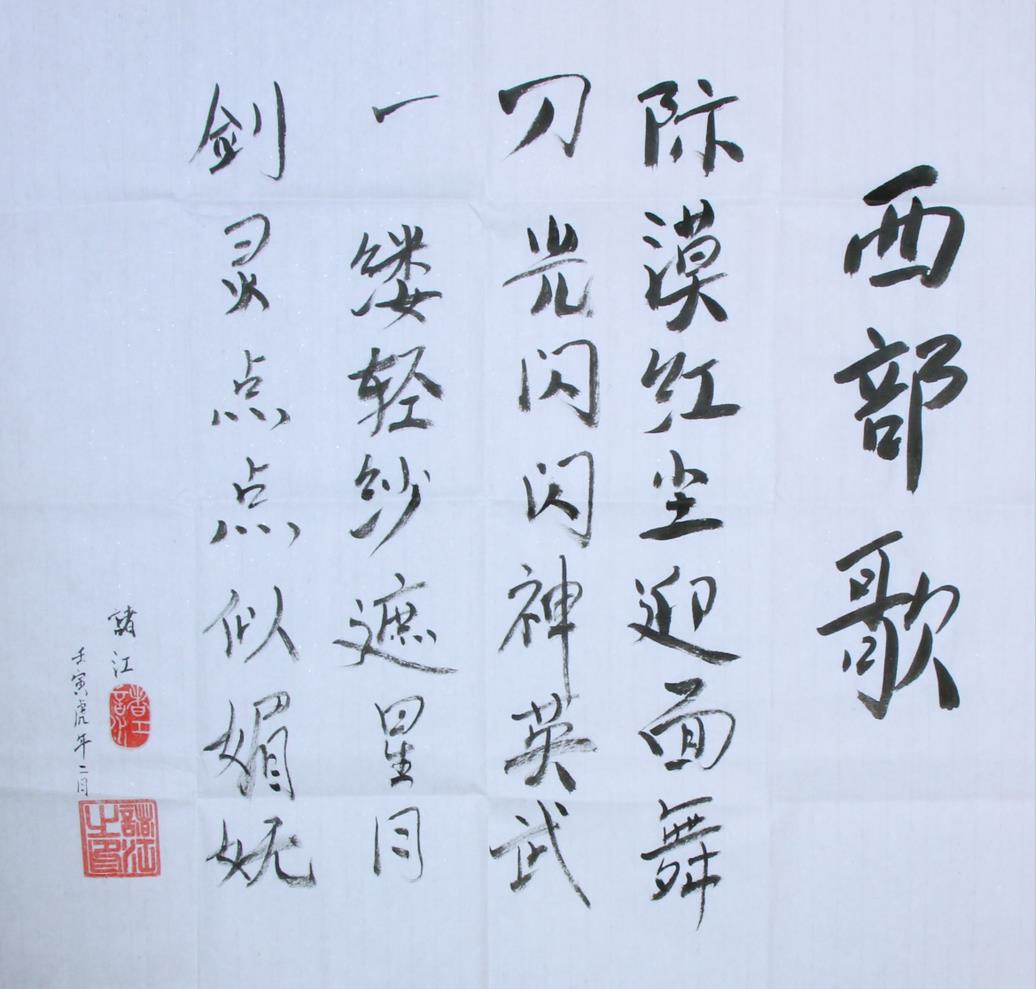 西部歌
际漠红尘迎面舞
刀光闪闪神英武
一缕轻纱遮星月
剑灵点点似媚妩
諸江
壬寅虎年二月
諸江
諸江之印